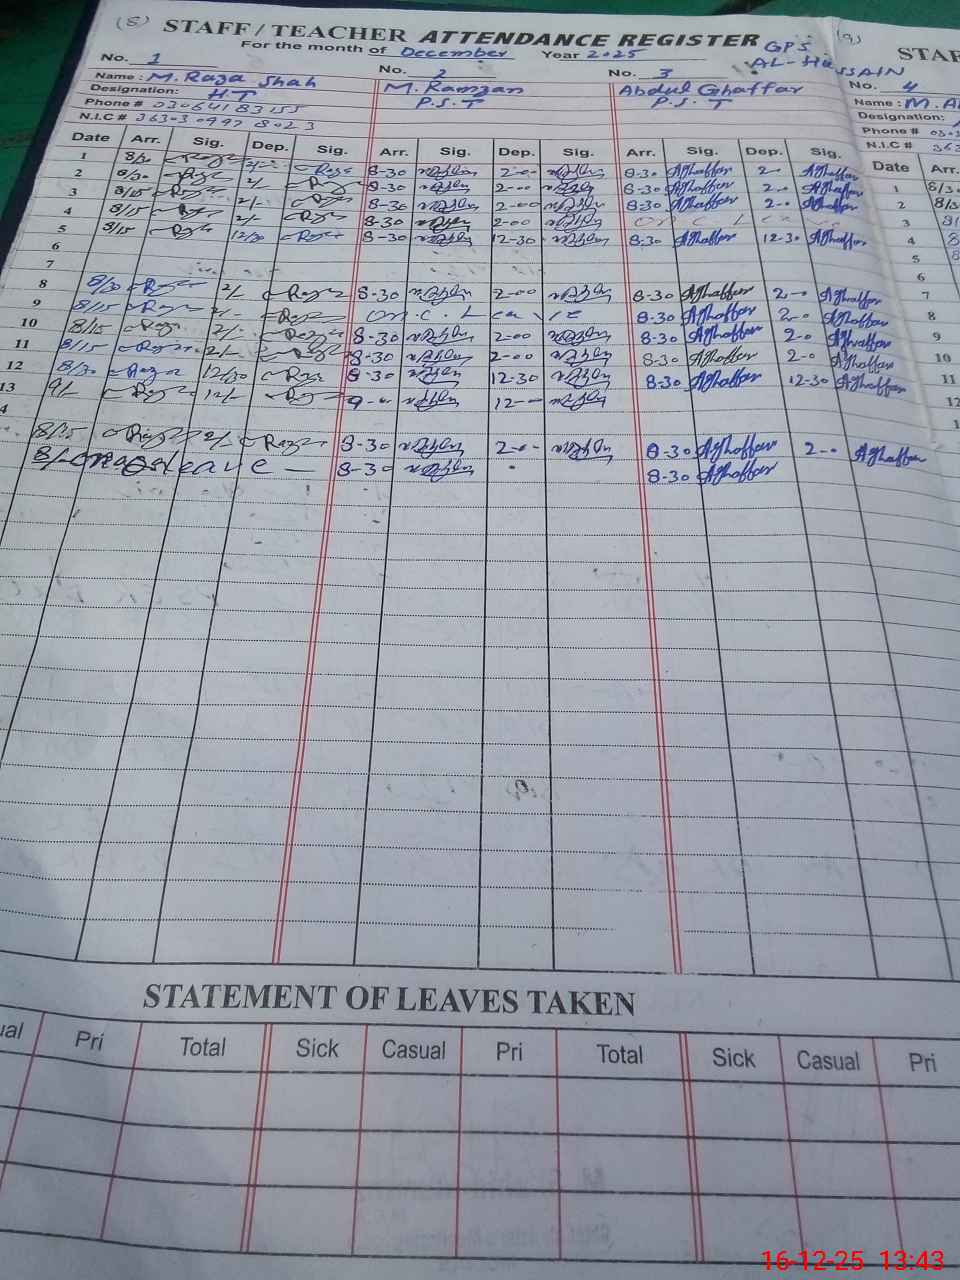 (8) STAFF / TEACHER ATTENDANCE REGISTER GPS (9) STAF
For the month of December Year 2025 AL-HUSSAIN
No. 1 No. 2 No. 3 No. 4
Name : M. Raza Shah M. Ramzan Abdul Ghaffar Name : M. A
Designation: H.T P.S.T P.S.T Designation:
Phone # 03064183155 Phone # 030
N.I.C # 36303 0997 802 3 N.I.C # 363
Date Arr. Sig. Dep. Sig. Arr. Sig. Dep. Sig. Arr. Sig. Dep. Sig. Date Arr.
1 8/30 Raza 2/- Raza 8-30 2-00 8-30 AGhaffar 2-0 AGhaffar 1 8/30
2 8/30 Raza 2/- Raza 8-30 2-00 8-30 AGhaffar 2-0 AGhaffar 2 8/3
3 8/15 Raza 2/- Raza 8-30 2-00 8-30 AGhaffar 2-0 AGhaffar 3
4 8/15 Raza 2/- Raza 8-30 2-00 4
5 8/15 Raza 12/30 Raza 8-30 12-30 8-30 AGhaffar 12-30 AGhaffar 5
6 6
7 7
8 8/30 Raza 2/- Raza 8-30 2-00 8-30 AGhaffar 2-0 AGhaffar 8
9 8/15 Raza 2/- Raza on C. Leave 8-30 AGhaffar 2-0 AGhaffar 9
10 8/15 Raza 2/- Raza 8-30 2-00 8-30 AGhaffar 2-0 AGhaffar 10
11 8/15 Raza 2/- Raza 8-30 2-00 8-30 AGhaffar 2-0 AGhaffar 11
12 8/30 Raza 12/30 Raza 8-30 12-30 8-30 AGhaffar 12-30 AGhaffar 12
13 9/- Raza 12/- Raza 9-0 12-0
4
8/15 Raza 2/- Raza 8-30 2-00 8-30 AGhaffar 2-0 AGhaffar
leave 8-30 8-30 AGhaffar
STATEMENT OF LEAVES TAKEN
ual Pri Total Sick Casual Pri Total Sick Casual Pri
16-12-25 13:43